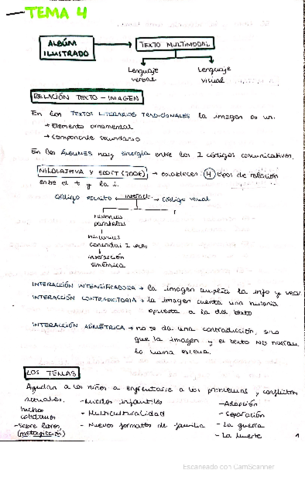 - TEMA 4
ÁLBUM ILUSTRADO → TEXTO MULTIMODAL
Lenguaje verbal
Lenguaje visual
RELACIÓN TEXTO - IMAGEN
En los TEXTOS LITERARIOS TRADICIONALES la imagen es un:
→ Elemento ornamental
→ Componente secundario
En los ÁLBUMES hay sinergia entre los 2 códigos comunicativos.
NIKOLAJEVA y SCOTT (2001) → establecen 4 tipos de relación
entre el t y la i.
Código escrito código visual
historias
paralelas
INTERACCIÓN INTENSIFICADORA → la imagen amplía la info y
INTERACCIÓN CONTRADICTORIA → la imagen cuenta una historia
opuesta a la del texto
INTERACCIÓN ASIMÉTRICA → no se da una contradicción, sino
que la imagen y el texto NO
la misma
LOS TEMAS
Ayudan a los niños a enfrentarse a los problemas y conflictos
actuales.
- Miedos infantiles
- Adopción
- Multiculturalidad
- Separación
- Nuevos formatos de familia
- La guerra
- Sobre libros
(metaficción)
- La muerte
Escaneado con CamScanner